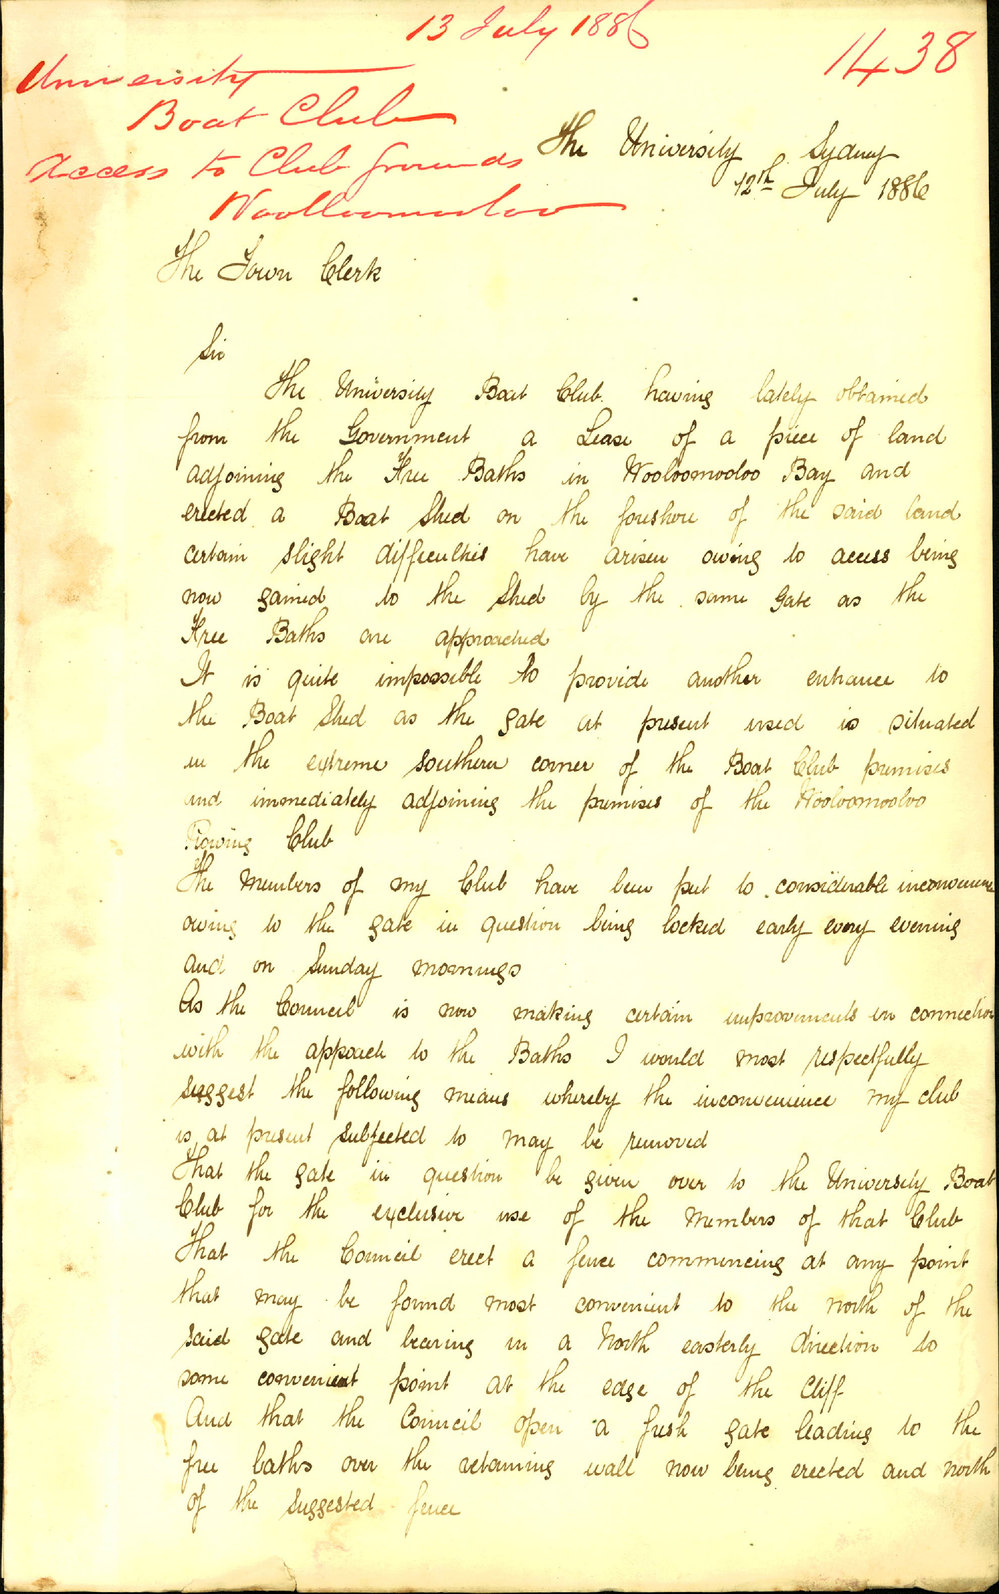 13 July 1886
1438
University
Boat Club
Access to Club grounds
Woolloomooloo
The University Sydney
12th July 1886
The Town Clerk
Sir
The University Boat Club having lately obtained
from the Government a Lease of a piece of land
adjoining the Free Baths in Wooloomooloo Bay and
erected a Boat Shed on the foreshore of the said land
certain slight difficulties have arisen owing to access being
now gained to the Shed by the same gate as the
Free Baths are approached
It is quite impossible to provide another entrance to
the Boat Shed as the gate at present used is situated
in the extreme southern corner of the Boat Club premises
and immediately adjoining the premises of the Wooloomooloo
Rowing Club
The Members of my Club have been put to considerable inconvenience
owing to the gate in question being locked early every evening
and on Sunday mornings
As the Council is now making certain improvements in connection
with the appoach to the Baths I would most respectfully
suggest the following means whereby the inconvenience my club
is at present subjected to may be removed
That the gate in question be given over to the University Boat
Club for the exclusive use of the Members of that Club
That the Council erect a fence commencing at any point
that may be found most convenient to the north of the
said gate and bearing in a North easterly direction to
some convenient point at the edge of the Cliff
And that the Council open a fresh gate leading to the
free baths over the retaining wall now being erected and north
of the suggested fence